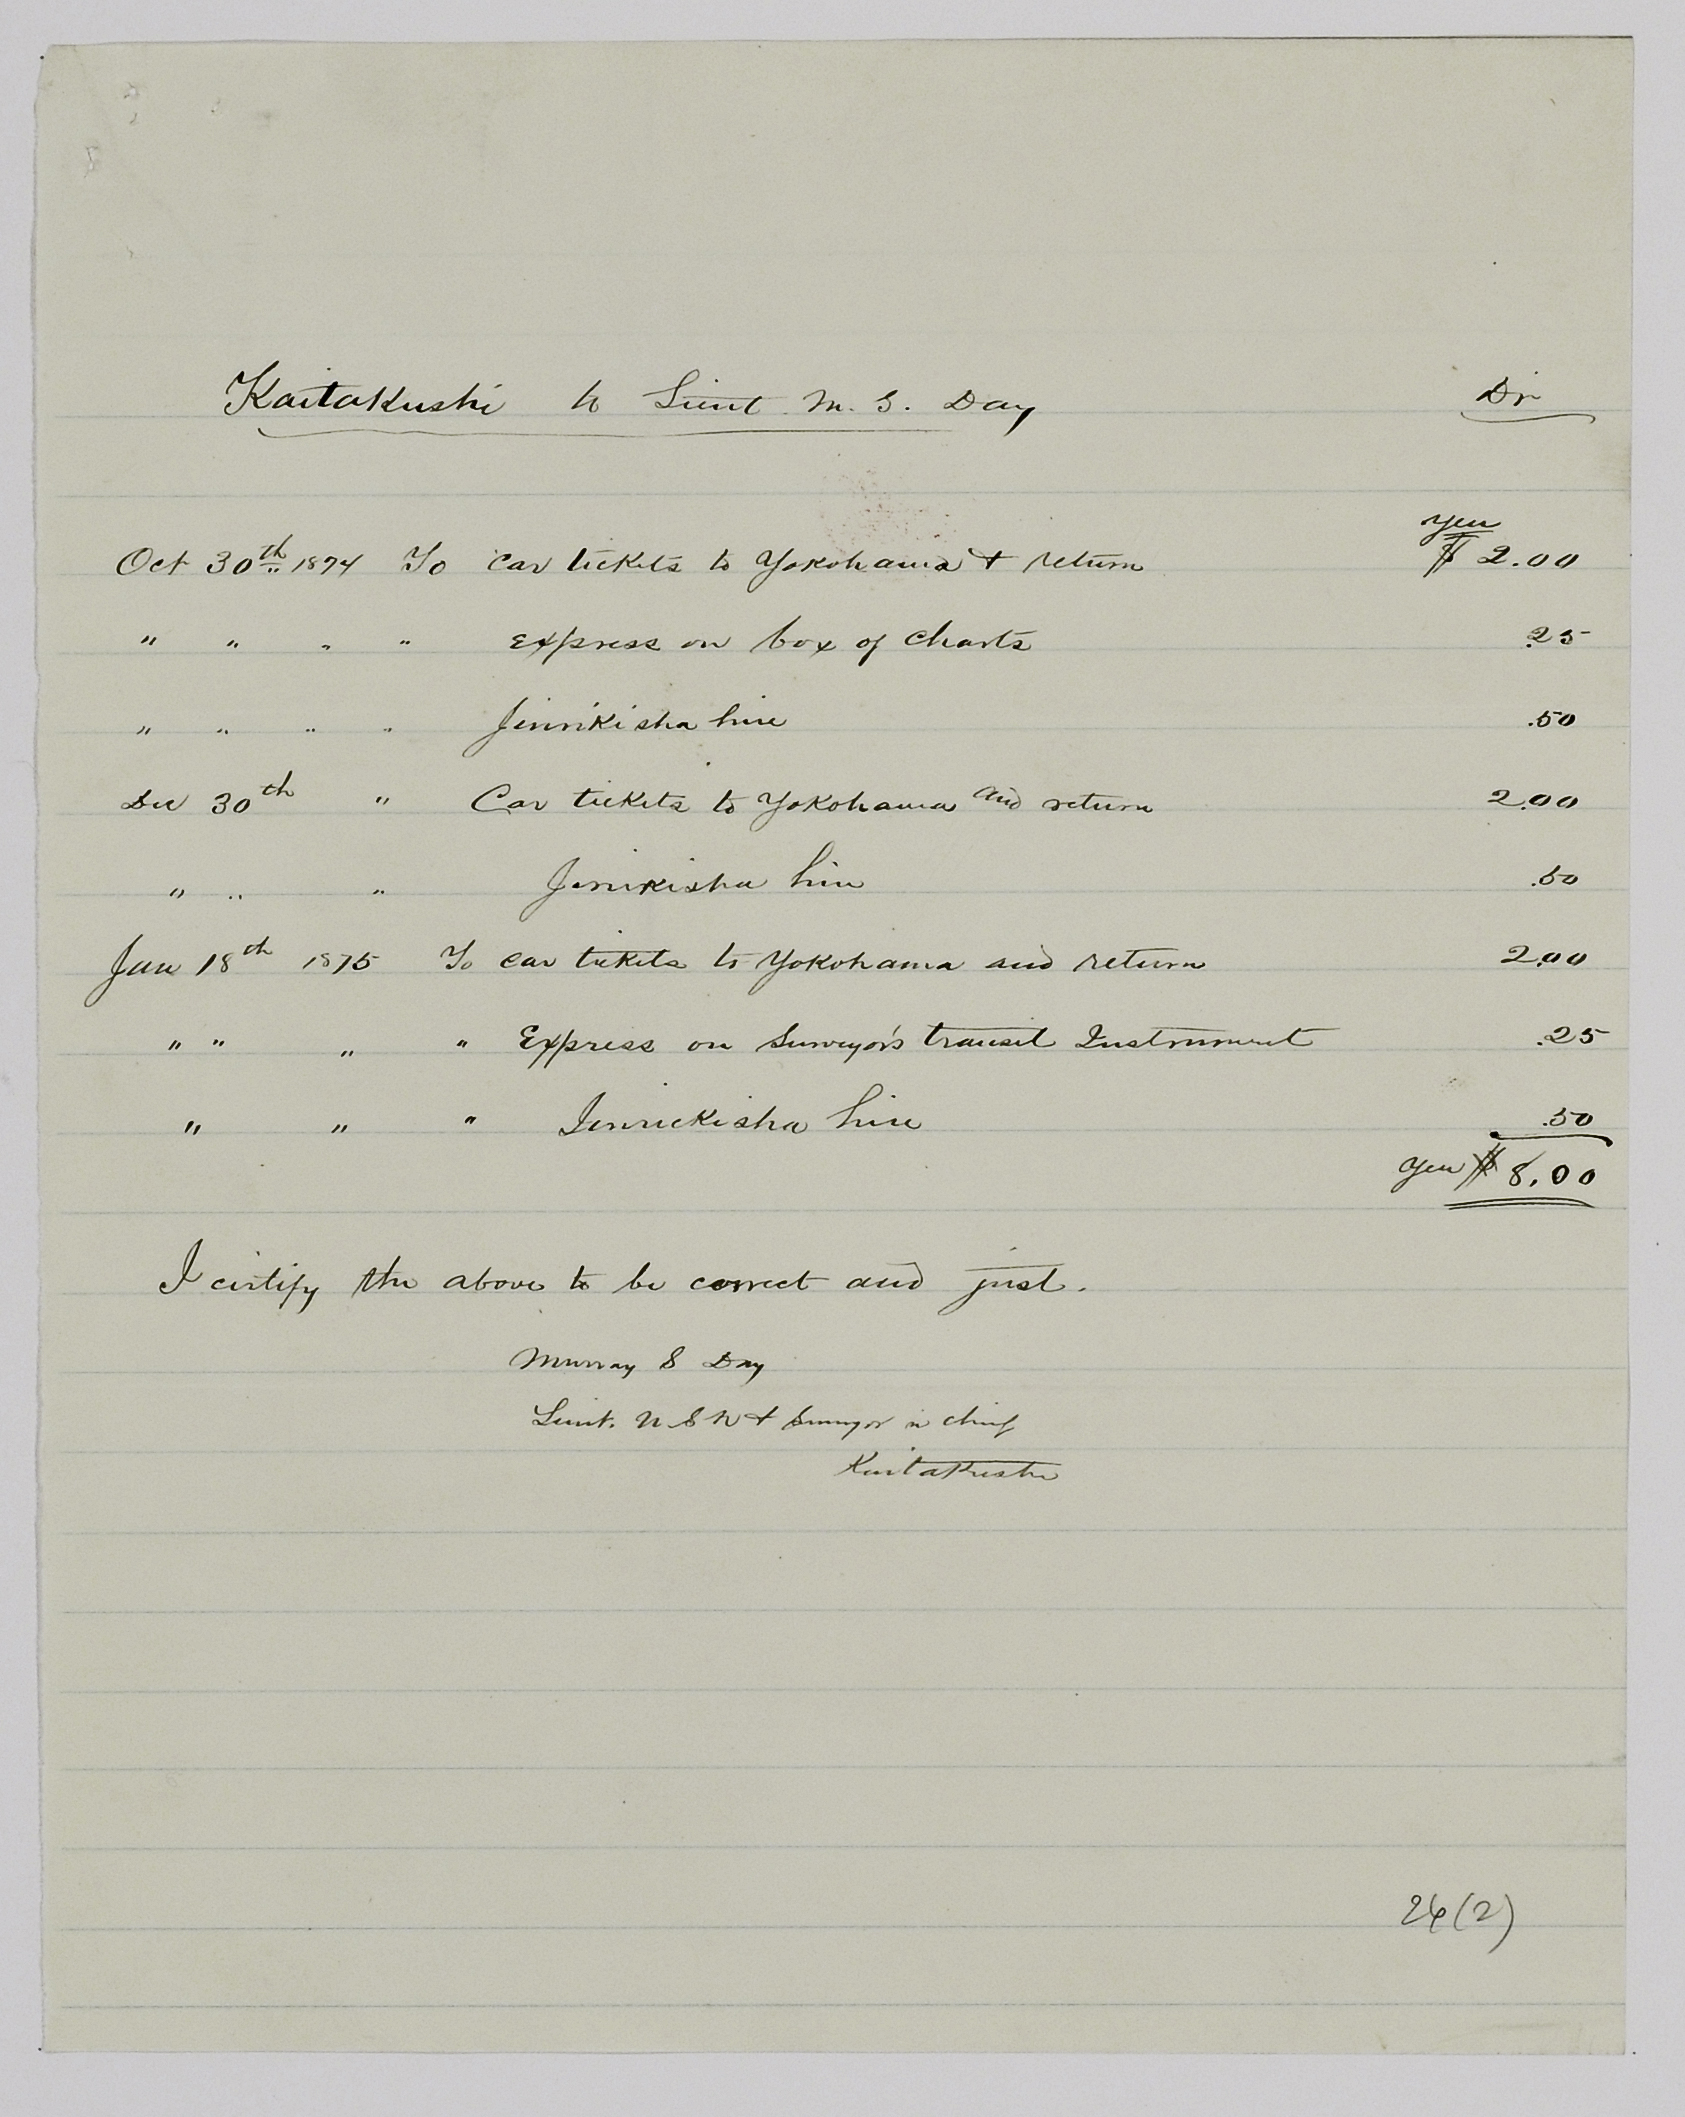 Kaitakushi to Lieut. M. S. Day Dr
yen
Oct 30th 1874 To car tickets to Yokohama & return $ 2.00
" " " " express on box of charts .25
" " " " Jinrikisha hire .50
Dec 30th " Car tickets to Yokohama and return 2.00
" " " Jinrikisha hire .50
Jan 18th 1875 To car tickets to Yokohama and return 2.00
" " " " Express on Surveyor's transit Instrument .25
" " " Jinrickisha hire .50
yen $ 8.00
I certify the above to be correct and just.
Murray S Day
Lieut. U S N & Surveyor in chief
Kaitakushi
26(2)